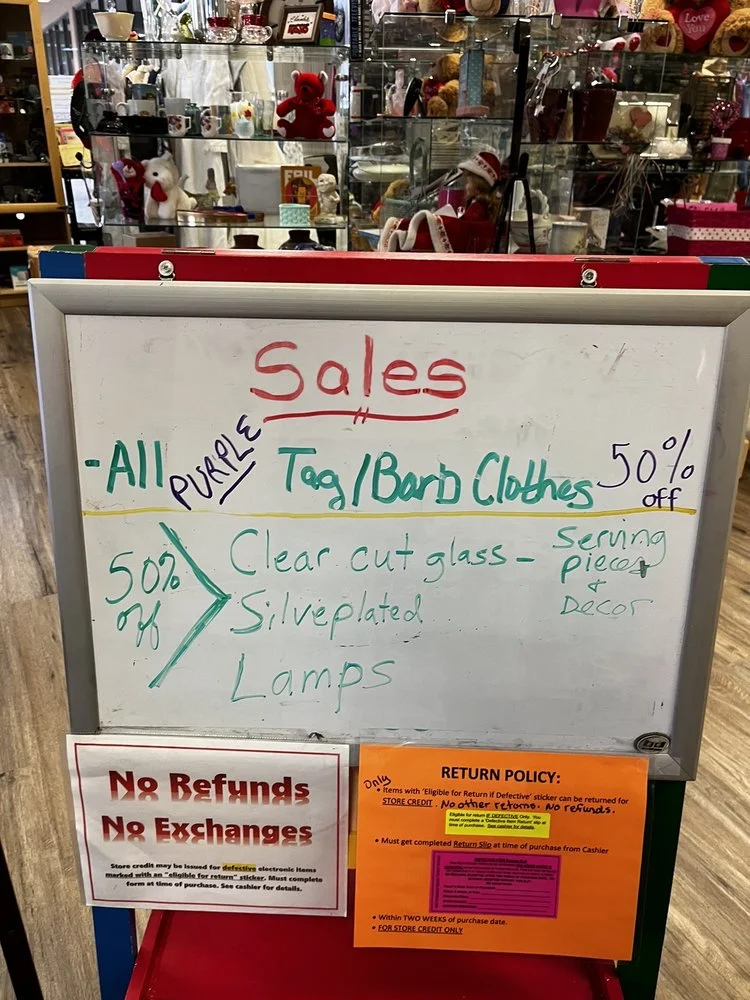 Love
You
Sales
- All PURPLE Tag/Barb Clothes 50% off
50% off > Clear cut glass – Serving pieces + Decor
Silveplated
Lamps
bd
No Refunds
No Exchanges
Store credit may be issued for defective electronic items
marked with an "eligible for return" sticker. Must complete
form at time of purchase. See cashier for details.
RETURN POLICY:
Only
• Items with 'Eligible for Return if Defective' sticker can be returned for
STORE CREDIT. No other returns. No refunds.
Eligible for return IF DEFECTIVE Only. You
must complete a 'Defective Item Return' slip at
time of purchase. See cashier for details.
• Must get completed Return Slip at time of purchase from Cashier
• Within TWO WEEKS of purchase date.
• FOR STORE CREDIT ONLY